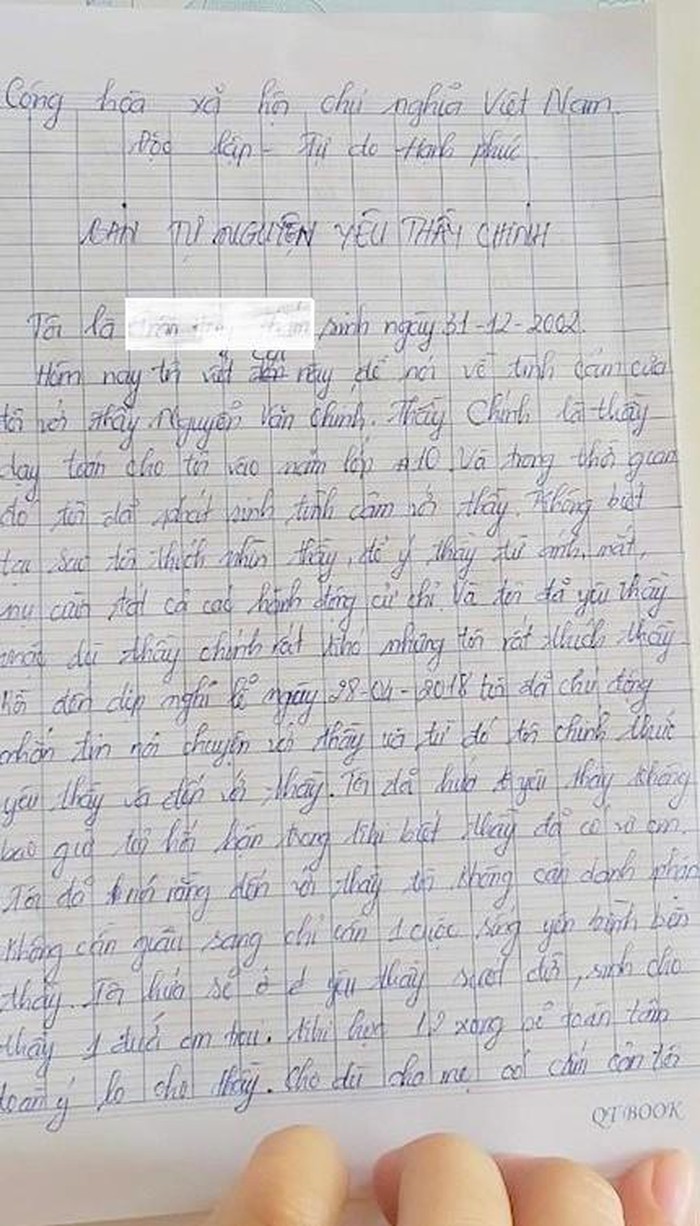 Cộng hòa xã hội chủ nghĩa Việt Nam.
Độc lập - Tự do - Hạnh phúc
BẢN TỰ NGUYỆN YÊU THẦY CHINH
Tôi là sinh ngày 31-12-2002.
Hôm nay tôi viết này để nói về tình cảm của
tôi với thầy Nguyễn Văn Chinh. Thầy Chinh là thầy
dạy toán cho tôi vào năm lớp 10. Và trong thời gian
đó tôi đã phát sinh tình cảm với thầy. Không biết
tại sao tôi thích nhìn thầy, để ý thầy từ ánh mắt,
nụ cười tất cả các hành động cử chỉ. Và tôi đã yêu thầy
mặc dù thầy chinh rất khó nhưng tôi rất thích thầy
đến dịp nghỉ lễ ngày 28-04-2018 tôi đã chủ động
nhắn tin nói chuyện với thầy và từ đó tôi chính thức
yêu thầy và đến với thầy. Tôi đã hứa yêu thầy không
bao giờ tôi hối hận trong khi biết thầy đã có vợ con.
Tôi đã nói rằng đến với thầy tôi không cần danh phận
không cần giàu sang chỉ cần 1 cuộc sống yên bình bên
thầy. Tôi hứa sẽ ở yêu thầy suốt đời, sinh cho
thầy 1 đứa con trai. Khi học 12 xong sẽ toàn tâm
toàn ý lo cho thầy. Cho dù cha mẹ có cấm cản tôi
QT BOOK